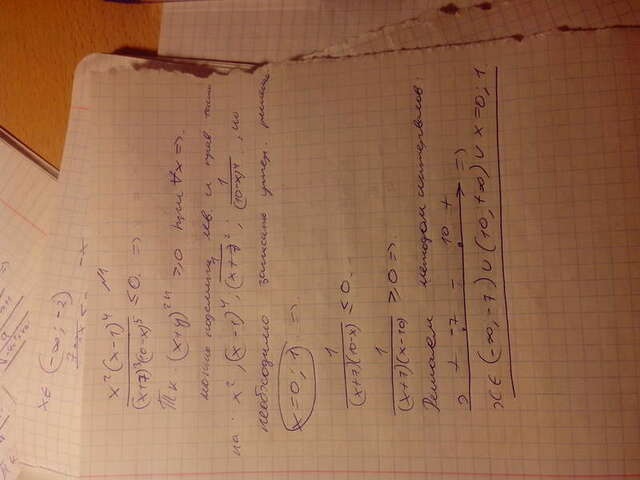 x∈ (-∞; -2)
x²(x-1)⁴ /(x+7)³(10-x)⁵ ≤ 0. ⇒
Т.к. (x+y)²ⁿ ≥ 0 при ∀x ⇒
можно лев. и прав. части
на: x², (x-1)⁴, 1/(x+7)², 1/(10-x)⁴, но
необходимо записать решение
x=0; 1 ⇒
1/(x+7)(10-x) ≤ 0.
1/(x+7)(x-10) ≥ 0 ⇒
Решаем методом интервалов:
+ -7 - 10 + ⇒
x∈ (-∞, -7) ∪ (10, +∞) ∪ x=0; 1